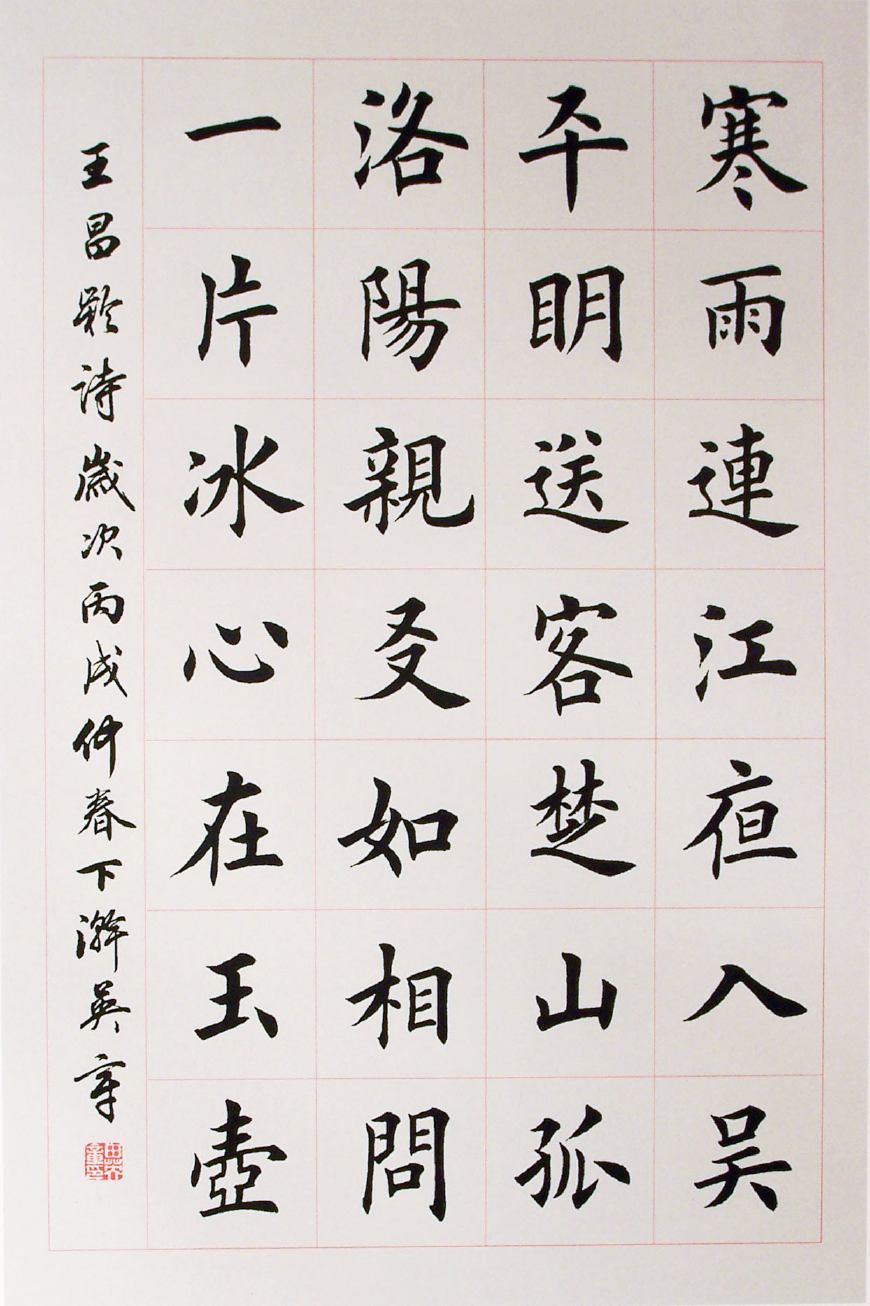 寒雨連江夜入吴
平眀送客楚山孤
洛陽親友如相問
一片冰心在玉壺
王昌齡詩歲次丙戌仲春下澣英章